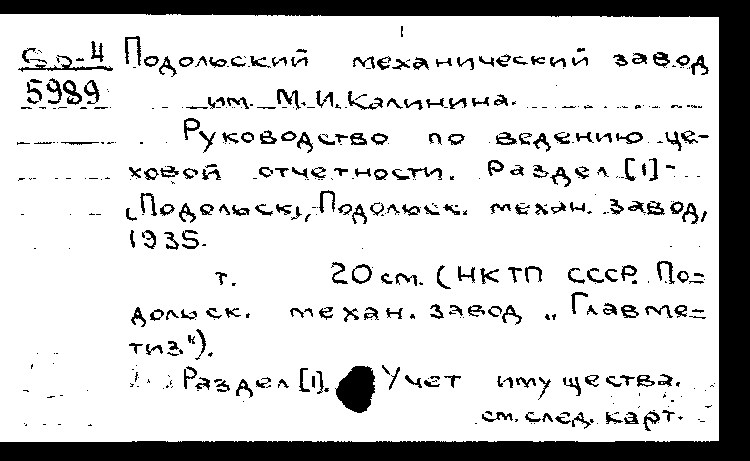 Бр-Ч Подольский механический завод
5989 им. М.И.Калинина.
Руководство по ведению це-
ховой отчетности. Раздел [1]-
[Подольск], Подольск. механ. завод,
1935.
т. 20 см. (НКТП СССР. По-
дольск. механ. завод „Главме-
тиз").
Раздел [1]. Учет имущества.
см. след. карт.